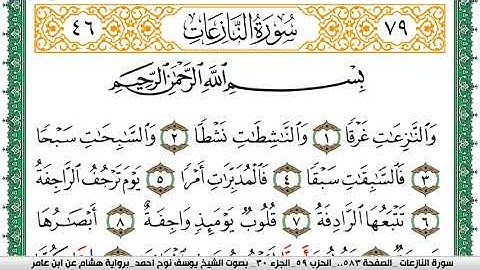 ٧٩ سُورَةُ النَّازِعَاتِ ٤٦
بِسْمِ اللَّهِ الرَّحْمَٰنِ الرَّحِيمِ
وَالنَّازِعَاتِ غَرْقًا ١ وَالنَّاشِطَاتِ نَشْطًا ٢ وَالسَّابِحَاتِ سَبْحًا
٣ فَالسَّابِقَاتِ سَبْقًا ٤ فَالْمُدَبِّرَاتِ أَمْرًا ٥ يَوْمَ تَرْجُفُ الرَّاجِفَةُ
٦ تَتْبَعُهَا الرَّادِفَةُ ٧ قُلُوبٌ يَوْمَئِذٍ وَاجِفَةٌ ٨ أَبْصَارُهَا
سورة النازعات _الصفحة ٥٨٣...الحزب ٥٩_الجزء ٣٠_ بصوت الشيخ يوسف نوح احمد_برواية هشام عن ابن عامر